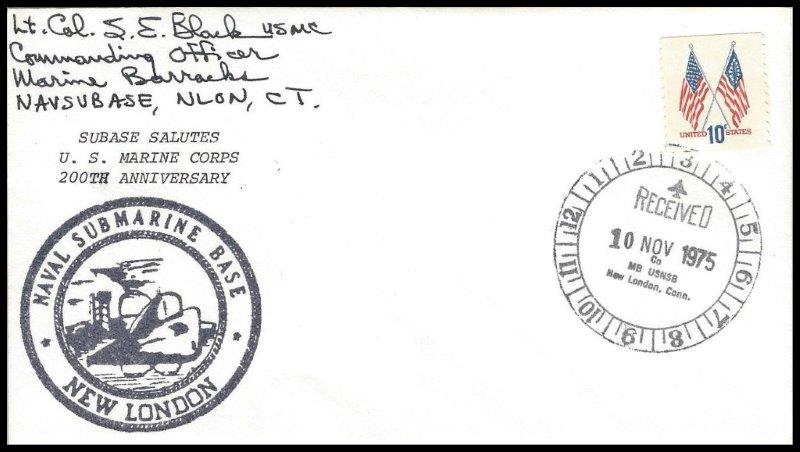 Lt. Col. S. E. Black USMC
Commanding Officer
Marine Barracks
NAVSUBASE, NLON, CT.
SUBASE SALUTES
U. S. MARINE CORPS
200TH ANNIVERSARY
NAVAL SUBMARINE BASE
NEW LONDON
UNITED 10c STATES
12 1 2 3 4 5 6 7 8 9 10 11
RECEIVED
10 NOV 1975
Co
MB USNSB
New London, Conn.